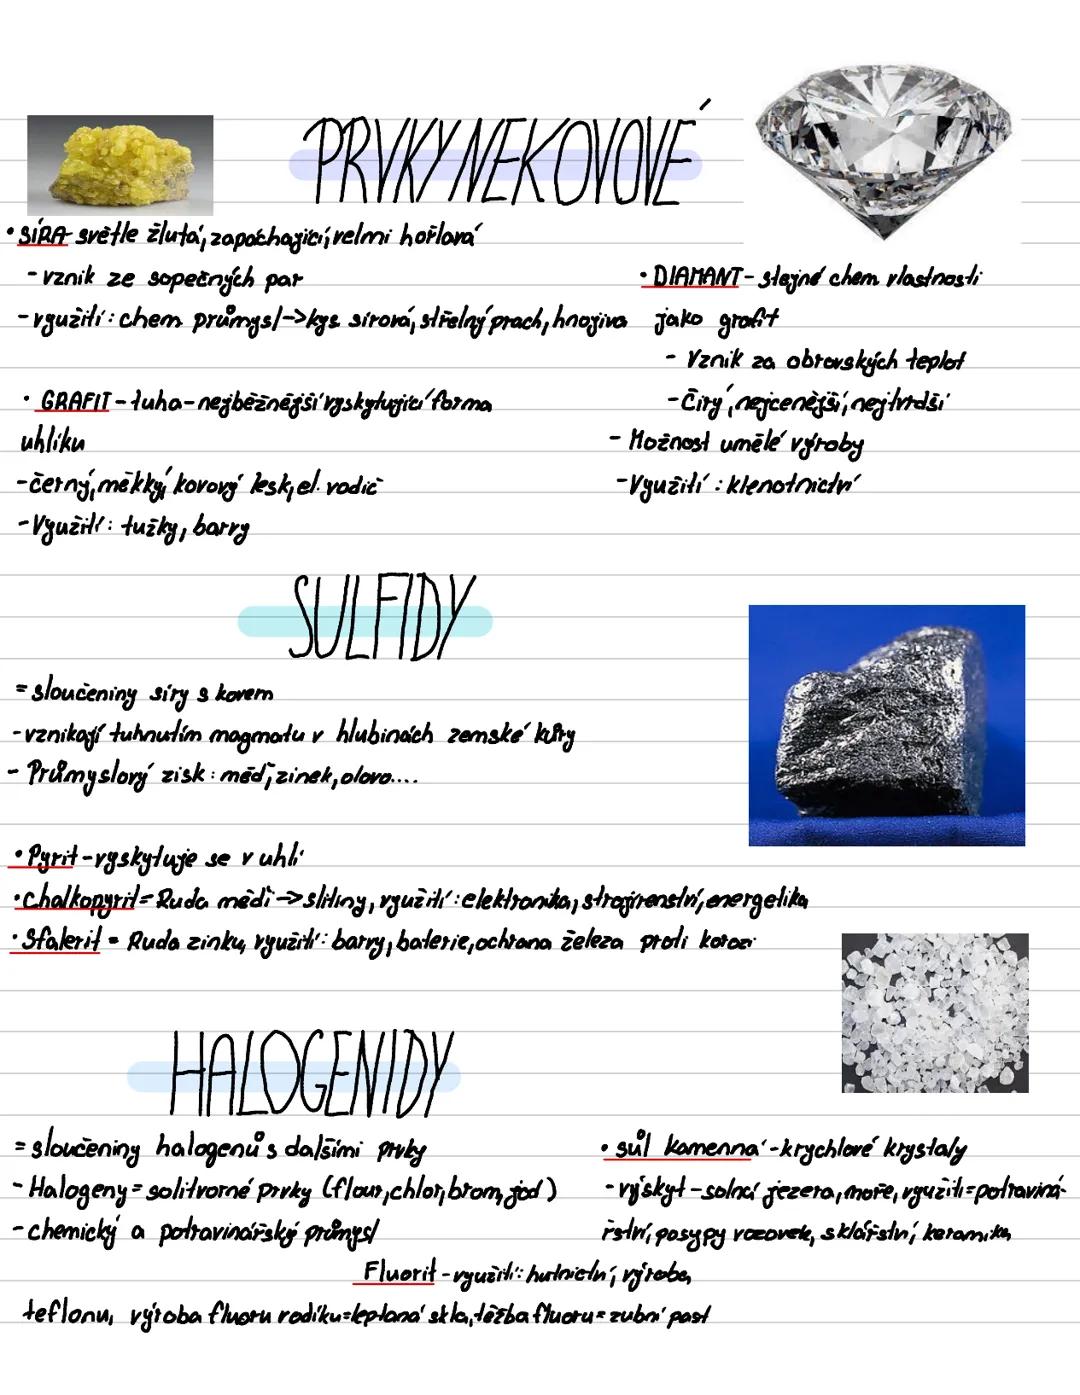 PRVKY NEKOVOVÉ
• SÍRA - světle žlutá, zapáchající, velmi hořlavá
- vznik ze sopečných par
- využití: chem průmysl -> kys. sírová, střelný prach, hnojiva
• GRAFIT - tuha - nejběžnější vyskytující forma
uhlíku
- černý, měkký, kovový lesk, el. vodič
- Využití: tužky, barvy
• DIAMANT - stejné chem vlastnosti
jako grafit
- Vznik za obrovských teplot
- Čirý, nejcenější, nejtvrdší
- Možnost umělé výroby
- Využití: klenotnictví
SULFIDY
= sloučeniny síry s kovem
- vznikají tuhnutím magmatu v hlubinách zemské kůry
- Průmyslový zisk: měď, zinek, olovo....
• Pyrit - vyskytuje se v uhlí
• Chalkopyrit = Ruda mědi -> slitiny, využití: elektronika, strojírenství, energetika
• Sfalerit = Ruda zinku, využití: barvy, baterie, ochrana železa proti korozi
HALOGENIDY
= sloučeniny halogenů s dalšími prvky
- Halogeny = solitvorné prvky (flour, chlor, brom, jod)
- chemický a potravinářský průmysl
• sůl kamenná - krychlové krystaly
- výskyt - solná jezera, moře, využití = potraviná-
řství, posypy vozovek, sklářství, keramika
Fluorit - využití: hutnictví, výroba
teflonu, výroba fluoru vodíku = leptaná skla, těžba fluoru = zubní past